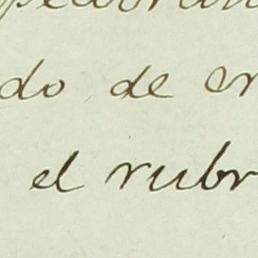 do de en
el rubr